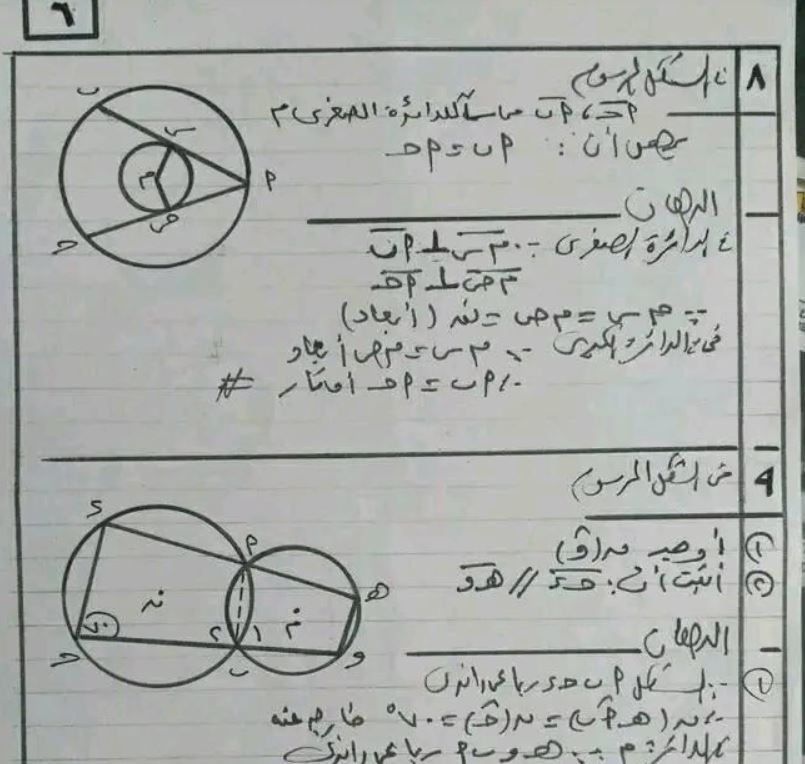 ٦
٨
فى الشكل المرسوم
أب ، أحـ مماساً للدائرة الصغرى م
برهن أن : أب = أحـ
البرهان
فى الدائرة الصغرى ∵ م س ⊥ أب
م ص ⊥ أحـ
∵ م س = م ص = نق (أبعاد)
فى الدائرة الكبرى ∵ م س = م ص أبعاد
∴ أب = أحـ أوتار #
ب
س
م
أ
ص
حـ
٩
فى الشكل المرسوم
① أوجد ق(و)
② أثبت أن : حـ ء // هـ و
البرهان
① ∵ الشكل أ ب حـ ء رباعى دائرى
∴ ق(هـ أ ب) = ق(حـ) = ٧٠° خارجه عنه
فى الدائرة م ∵ هـ و ب أ رباعى دائرى
ء
أ
هـ
ن
م
٧٠
٢
١
حـ
ب
و